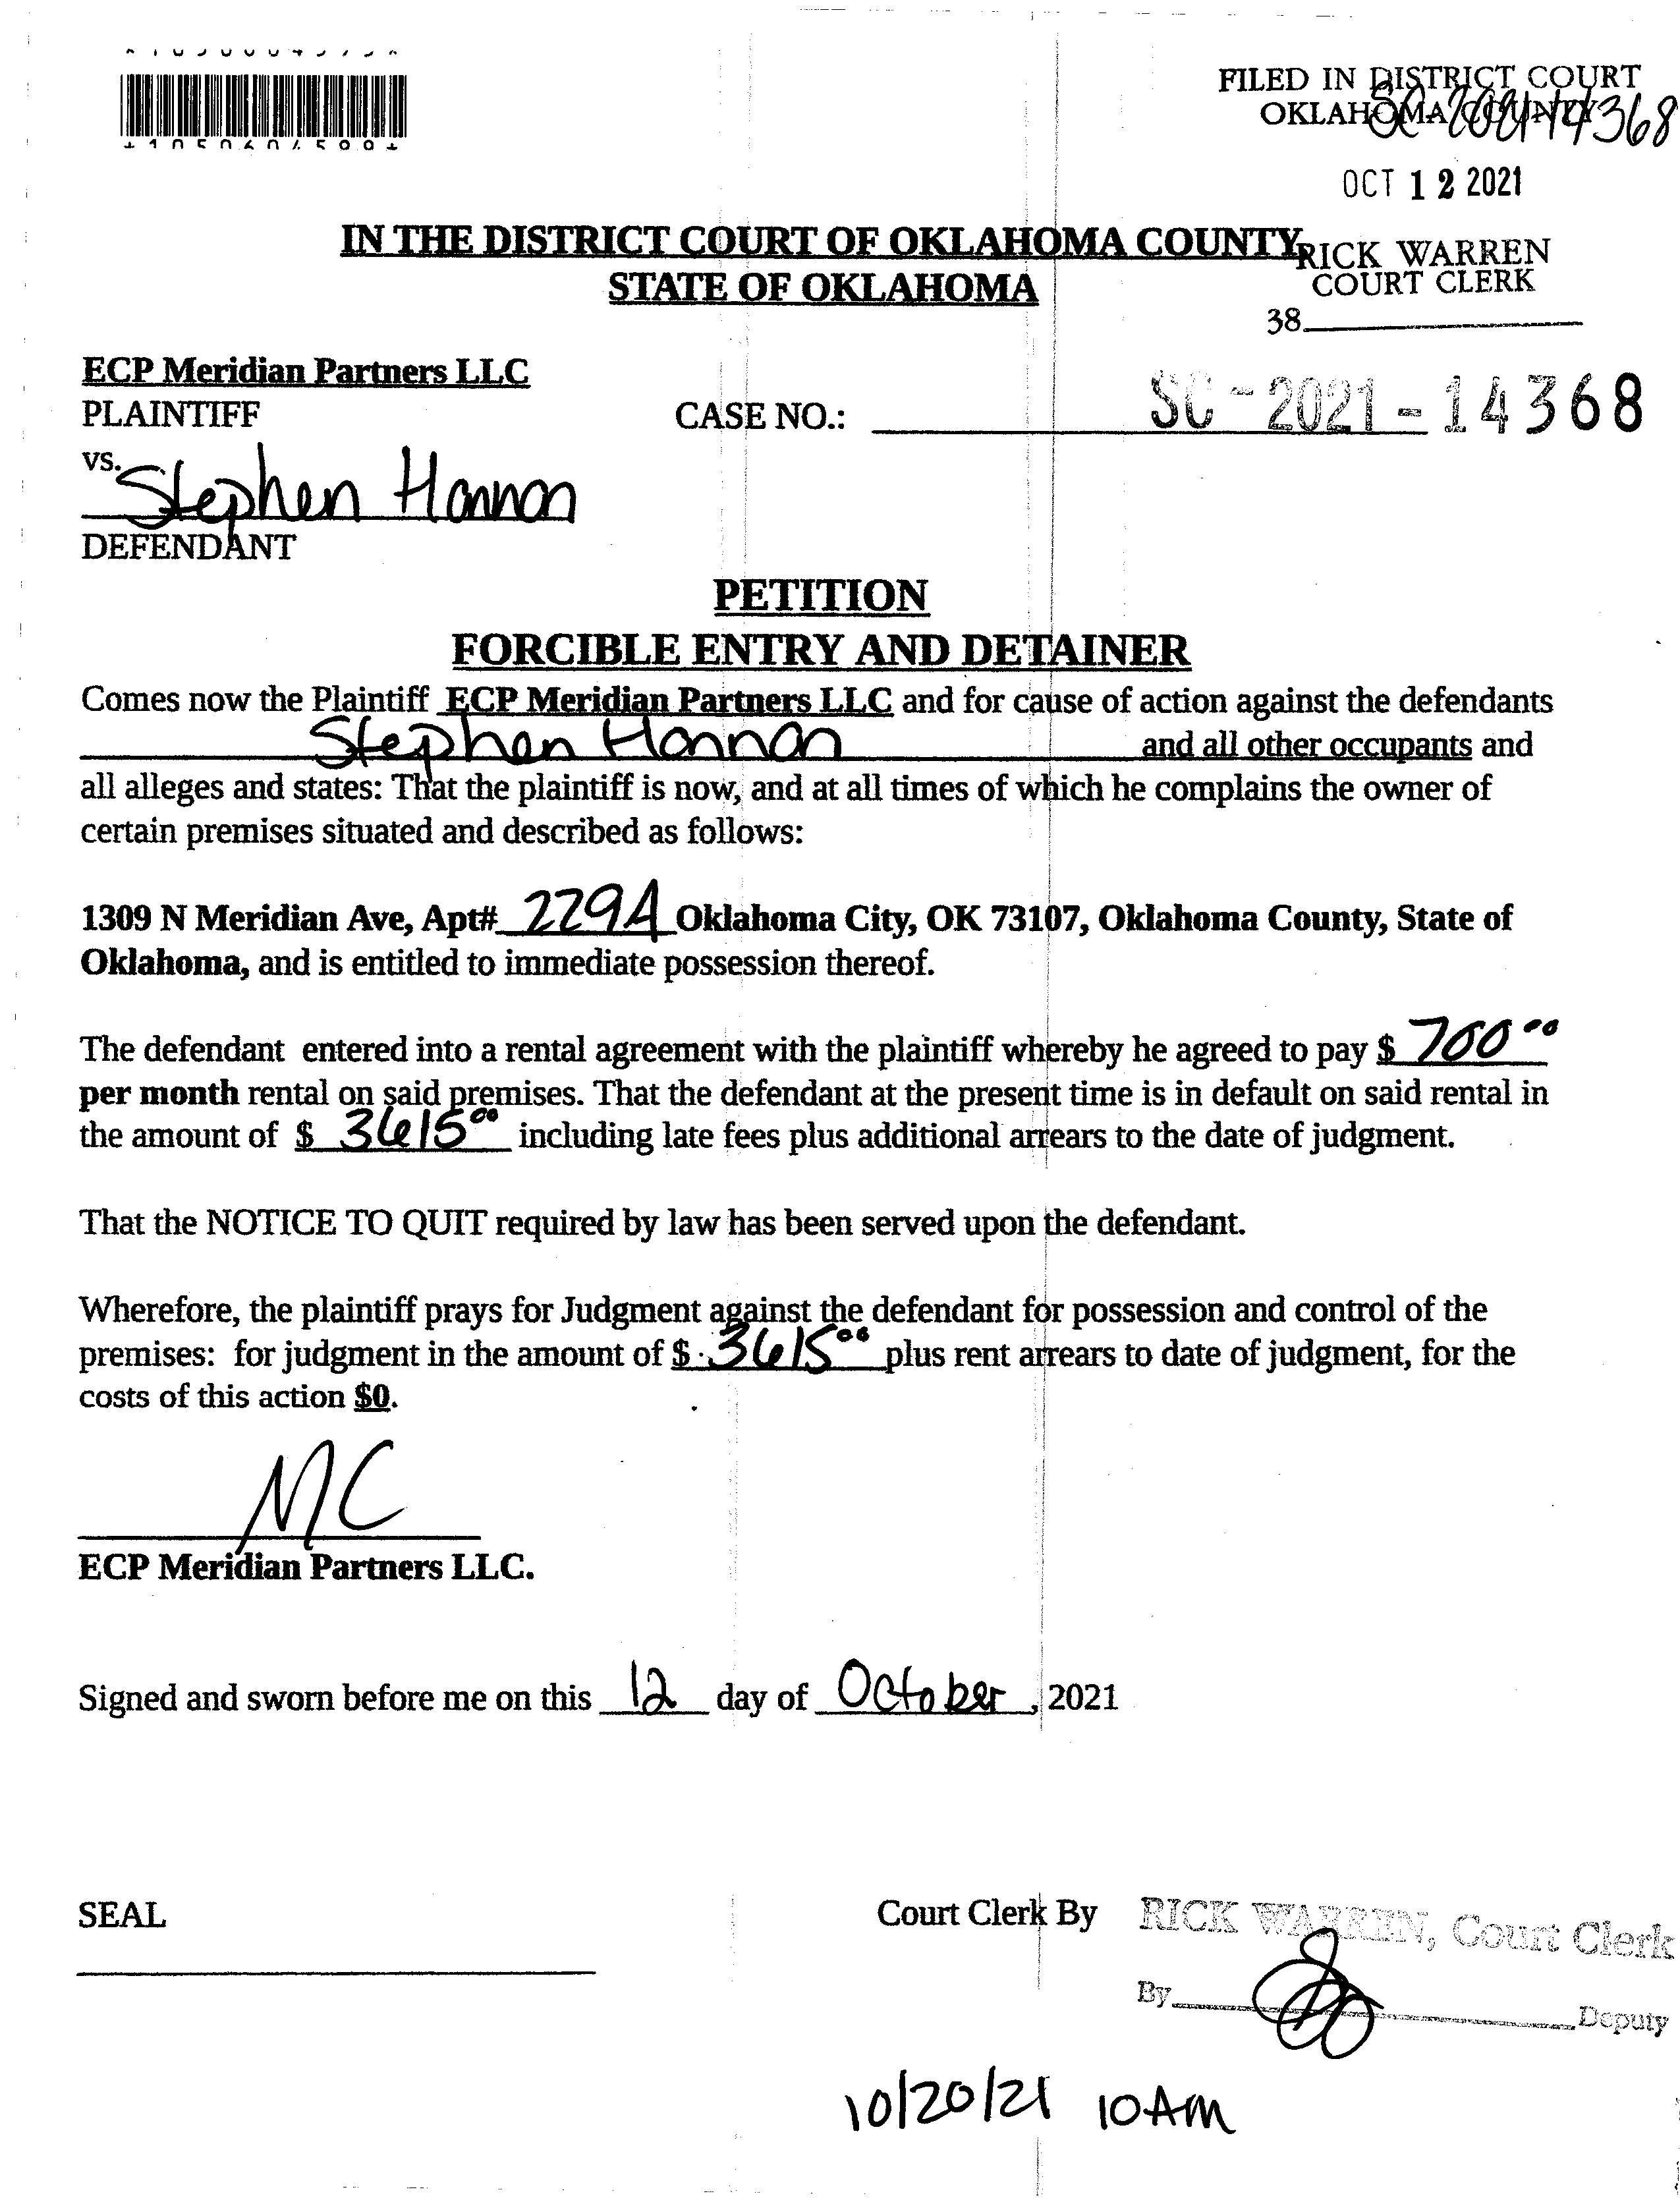 FILED IN DISTRICT COURT
OKLAHOMA COUNTY
SC-2021-14368
OCT 12 2021
IN THE DISTRICT COURT OF OKLAHOMA COUNTY
STATE OF OKLAHOMA
RICK WARREN
COURT CLERK
38
ECP Meridian Partners LLC
PLAINTIFF
CASE NO.: SC-2021-14368
vs.
Stephen Hannan
DEFENDANT
PETITION
FORCIBLE ENTRY AND DETAINER
Comes now the Plaintiff ECP Meridian Partners LLC and for cause of action against the defendants
Stephen Hannan and all other occupants and
all alleges and states: That the plaintiff is now, and at all times of which he complains the owner of
certain premises situated and described as follows:
1309 N Meridian Ave, Apt# 229A Oklahoma City, OK 73107, Oklahoma County, State of
Oklahoma, and is entitled to immediate possession thereof.
The defendant entered into a rental agreement with the plaintiff whereby he agreed to pay $ 700 00
per month rental on said premises. That the defendant at the present time is in default on said rental in
the amount of $ 3615 00 including late fees plus additional arrears to the date of judgment.
That the NOTICE TO QUIT required by law has been served upon the defendant.
Wherefore, the plaintiff prays for Judgment against the defendant for possession and control of the
premises: for judgment in the amount of $ 3615 00 plus rent arrears to date of judgment, for the
costs of this action $0.
MC
ECP Meridian Partners LLC.
Signed and sworn before me on this 12 day of October, 2021
SEAL
Court Clerk By RICK WARREN, Court Clerk
By Deputy
10/20/21 10AM